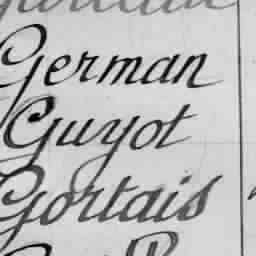 German
Guyot
Gortais